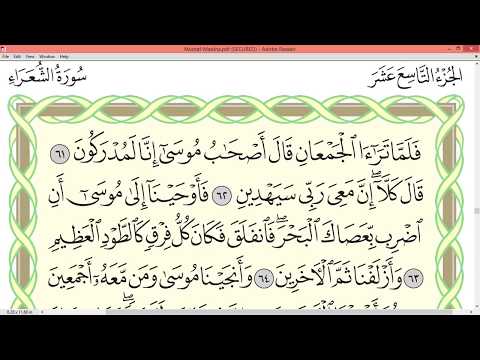 Mushaf-Madina.pdf (SECURED) - Adobe Reader
File Edit View Window Help
الجُزْءُ التَّاسِعَ عَشَرَ
سُورَةُ الشُّعَرَاءِ
فَلَمَّا تَرَٰٓءَا ٱلْجَمْعَانِ قَالَ أَصْحَٰبُ مُوسَىٰٓ إِنَّا لَمُدْرَكُونَ ٦١
قَالَ كَلَّآ إِنَّ مَعِىَ رَبِّى سَيَهْدِينِ ٦٢ فَأَوْحَيْنَآ إِلَىٰ مُوسَىٰٓ أَنِ
ٱضْرِب بِّعَصَاكَ ٱلْبَحْرَۖ فَٱنفَلَقَ فَكَانَ كُلُّ فِرْقٍ كَٱلطَّوْدِ ٱلْعَظِيمِ
٦٣ وَأَزْلَفْنَا ثَمَّ ٱلْءَاخَرِينَ ٦٤ وَأَنجَيْنَا مُوسَىٰ وَمَن مَّعَهُۥٓ أَجْمَعِينَ
8.20 x 11.60 in